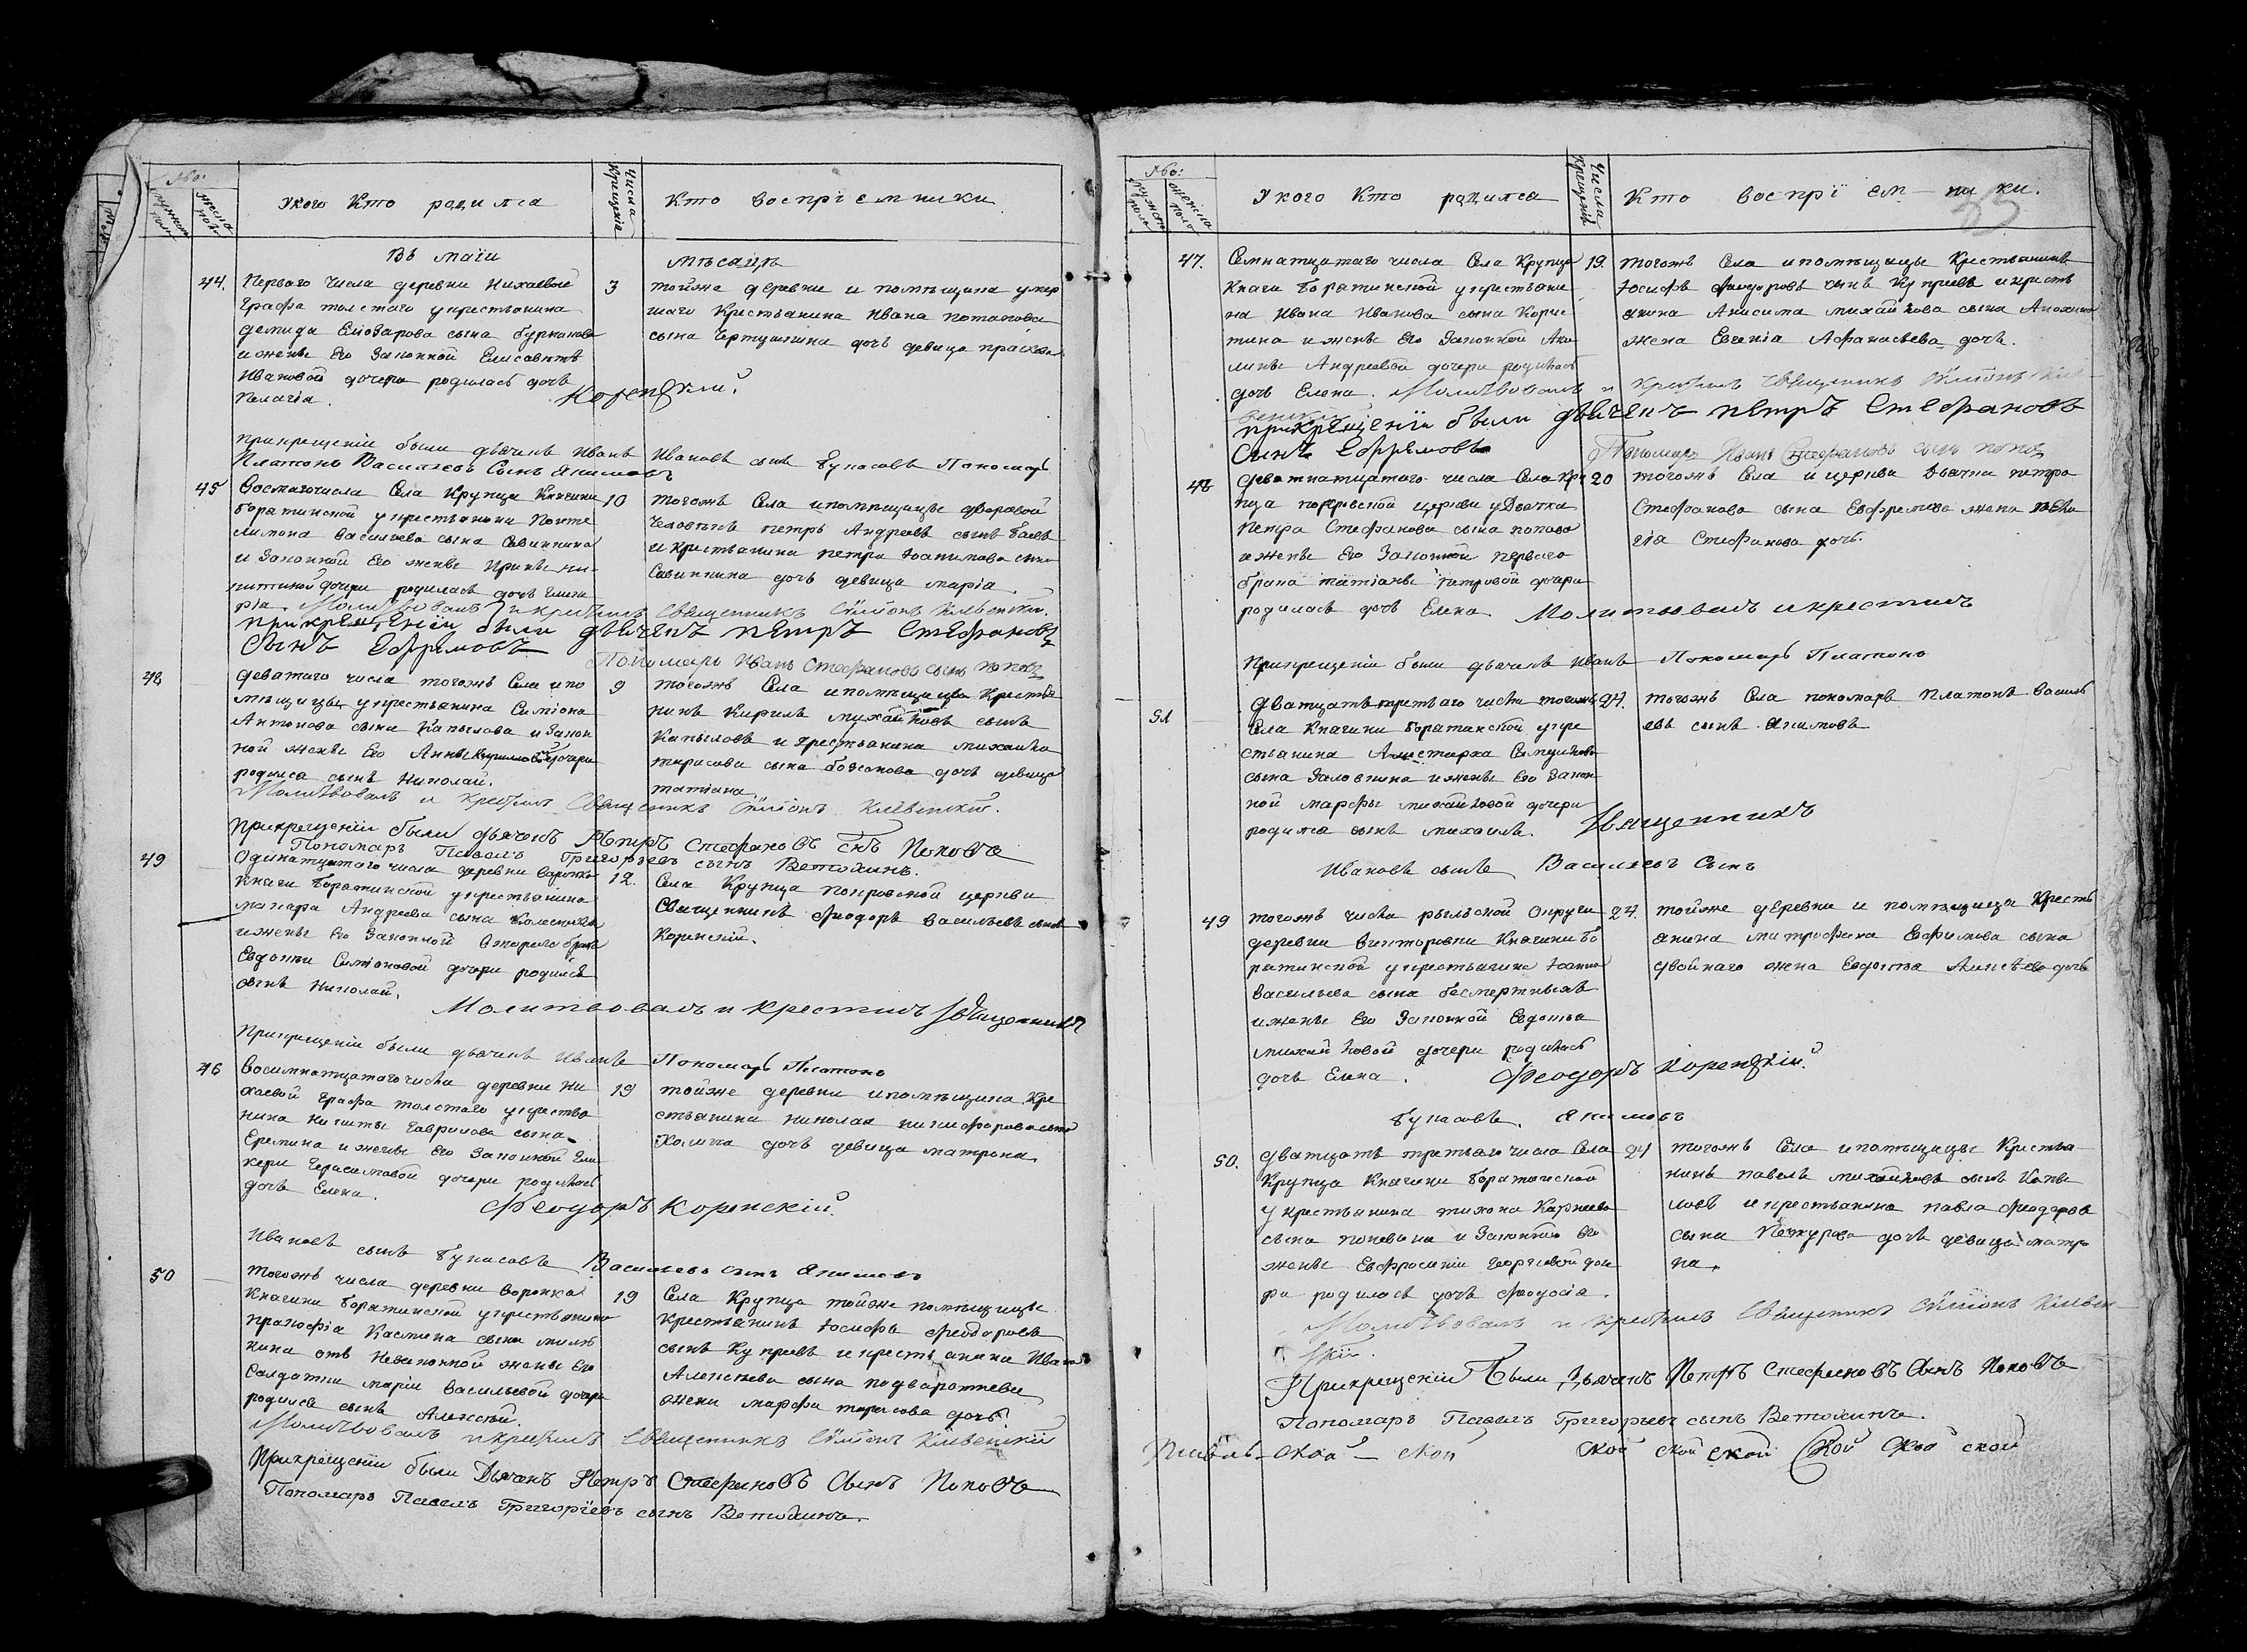 Числа крещенiе
Укого Кто родился
Кто воспрiемники
Въ маiи
мѣсяцѣ
44.
Первого числа деревни Нихаевой
Графа толстаго укрестьянина
демида Елизарова сына бурнанова
ижены Его Законной Елисаветы
Ивановой дочери родилась дочь
Пелагiя.
3
тойже деревни и помѣщика умер
шаго Крестьянина Ивана потапова
сына дочь девица
Коренскiй
Прикрещенiи были дьячекъ Иванъ Ивановъ сынъ Пономарь
Платонъ Васильевъ Сынъ Якимовъ
45
Восмагочисла Села Крупца Княгини
боратинской укрестьянина Панте
лимона Васильева сына Савинкина
и Законной Его жены Ирины ни
китиной дочери родилась дочь Глике
рiя
10
тогожъ Села ипомѣщицы дворовой
человѣкъ петръ Андреевъ сынъ
икрестьянина петра Иоакимова сына
Савинкина дочь девица марiя
Молитвовалъ и крестилъ священникъ Сvмiонъ Клевенскiй
прикрещенiи были дьячекъ петръ Стефановъ
Сынъ Ефремовъ
Пономарь Иванъ Стефановъ сынъ поповъ
48
деватаго числа тогожъ Села ипо
мѣщицы укрестьянина Симiона
Антонова сына Капылова и Закон
ной жены Его Анны Кириловой дочери
родился сынъ Николай.
9
тогожъ Села ипомѣщицы Крестья
нинъ Кирилъ михайловъ сынъ
Капыловъ и крестьянина михайла
тарасова сына дочь девица
татiана
Молитвовалъ и крестилъ Священникъ Сvмiонъ Клевенскiй.
Прикрещенiи были дьячекъ Петръ Стефановъ Снъ Поповъ
Пономарь Павелъ Григорьевъ сынъ Ветохинъ.
49
Одинатцатого числа деревни воронка
Княги боратинской укрестьянина
макара Андреева сына
ижены Его Законной втораго брака
Евдокiи Симiоновой дочери родился
сынъ Николай.
12.
Села Крупца покровской церкви
Священникъ Феодоръ васильевъ сынъ
Коренскiй.
Молитвовалъ и крестилъ Священникъ
Прикрещенiи были дьячекъ Иванъ Пономарь Платонъ
46
Восимнатцатагочисла деревни Ни
хаевой Графа толстаго укрестья
нина никиты Гаврилова сына
Еремина и жены Его Законной Гли
керiи Герасимовой дочери родилась
дочь Елена.
19
тойже деревни ипомѣщика кре
стьянина николая никифорова сына
дочь девица матрона.
Феодоръ Коренскiй.
Ивановъ сынъ Васильевъ сынъ Якимовъ
50
тогожъ числа деревни воронка
Княгини боратинской укрестьянина
прокофiя Касмина сына
нина отъ Незаконной жены Его
Салдатки марiи васильевой дочери
родился сынъ Алексѣй.
19
Села Крупца тойже помѣщицы
крестьянинъ Iосифъ феодоровъ
сынъ Купревъ и крестьянина Ивана
Алексѣева сына
жена марфа тарасова дочь.
Молитвовалъ и крестилъ Священникъ Сvмiонъ Клевенскiй
Прикрещенiи были Дьячекъ Петръ Стефановъ Сынъ Поповъ
Пономарь Павелъ Григорiевъ сынъ Ветохинъ.
Числа крещенiе
Укого Кто родился
Кто воспрiем-ники.
47.
Семнатцатаго числа Села Крупца
Княги боратинской укрестьяни
на Ивана Иванова сына Корис
тина и жены Его Законной Аку
лины Андреевой дочери родилась
дочь Елена.
19.
тогожъ Села ипомѣщицы Крестьянинъ
Iосифъ феодоровъ сынъ Купреевъ икресть
янина Анисима михайлова сына
жена Евгенiя Афанасьева дочь.
Молитвовалъ и крестилъ Священникъ Сvмiонъ Клевенскiй
прикрещенiи были дьячекъ петръ Стефановъ
Сынъ Ефремовъ
Пономарь Иванъ Стефановъ сынъ поповъ
48
Деветнатцатаго числа Села Кру
пца покровской церкви уДьячка
Петра Стефанова сына попова
ижены Его Законной перваго
брака татiаны петровой дочери
родилась дочь Елена
20
тогожъ Села и церкви Дьячка петра
Стефанова сына Евфремова жена
гiя Стефанова дочь.
Молитвовалъ икрестилъ
Прикрещенiи были дьячекъ Иванъ Пономарь Платонъ
51
Дватцатьтретьаго числа тогожъ
Села Княгини боратинской укре
стьянина Алистарха Самуилова
сына ижены Его Закон
ной марфы михайловой дочери
родился сынъ михаилъ.
24.
тогожъ Села пономарь платонъ василь
евъ сынъ Якимовъ
Священникъ
Ивановъ сынъ Васильевъ Сынъ
49
тогожъ числа рыльской округи
деревни викторовки Княгини бо
ратинской укрестьянина Iоанна
Васильева сына бесмертныхъ
ижены Его Законной Евдокiи
михайловой дочери родилась
дочь Елена.
24.
тойже деревни и помѣщицы Кресть
янина митрофана Евфимова сына
двойнаго жена Евдокiя Алексѣева дочь
Феодоръ Коренскiй.
Якимовъ
50.
Дватцать третьаго числа Села
Крупца Княгини боратинской
укрестьянина тихона Карнеева
сына и Законной Его
жены Евфросинiи Георгiевой доче
ри родилась дочь феодосiя.
24
тогожъ Села ипомѣщицы Крестья
нинъ павелъ михайловъ сынъ Капы
ловъ икрестьянина павла феодорова
сына дочь девица матро
на.
Молитвовалъ и крестилъ Священникъ Сvмiонъ Клевен
скiй.
Прикрещенiи были Дьячекъ Петръ Стефановъ Сынъ Поповъ
Пономарь Павелъ Григорьевъ сынъ Ветохинъ.
ской - ской ской ской ской ской ской ской